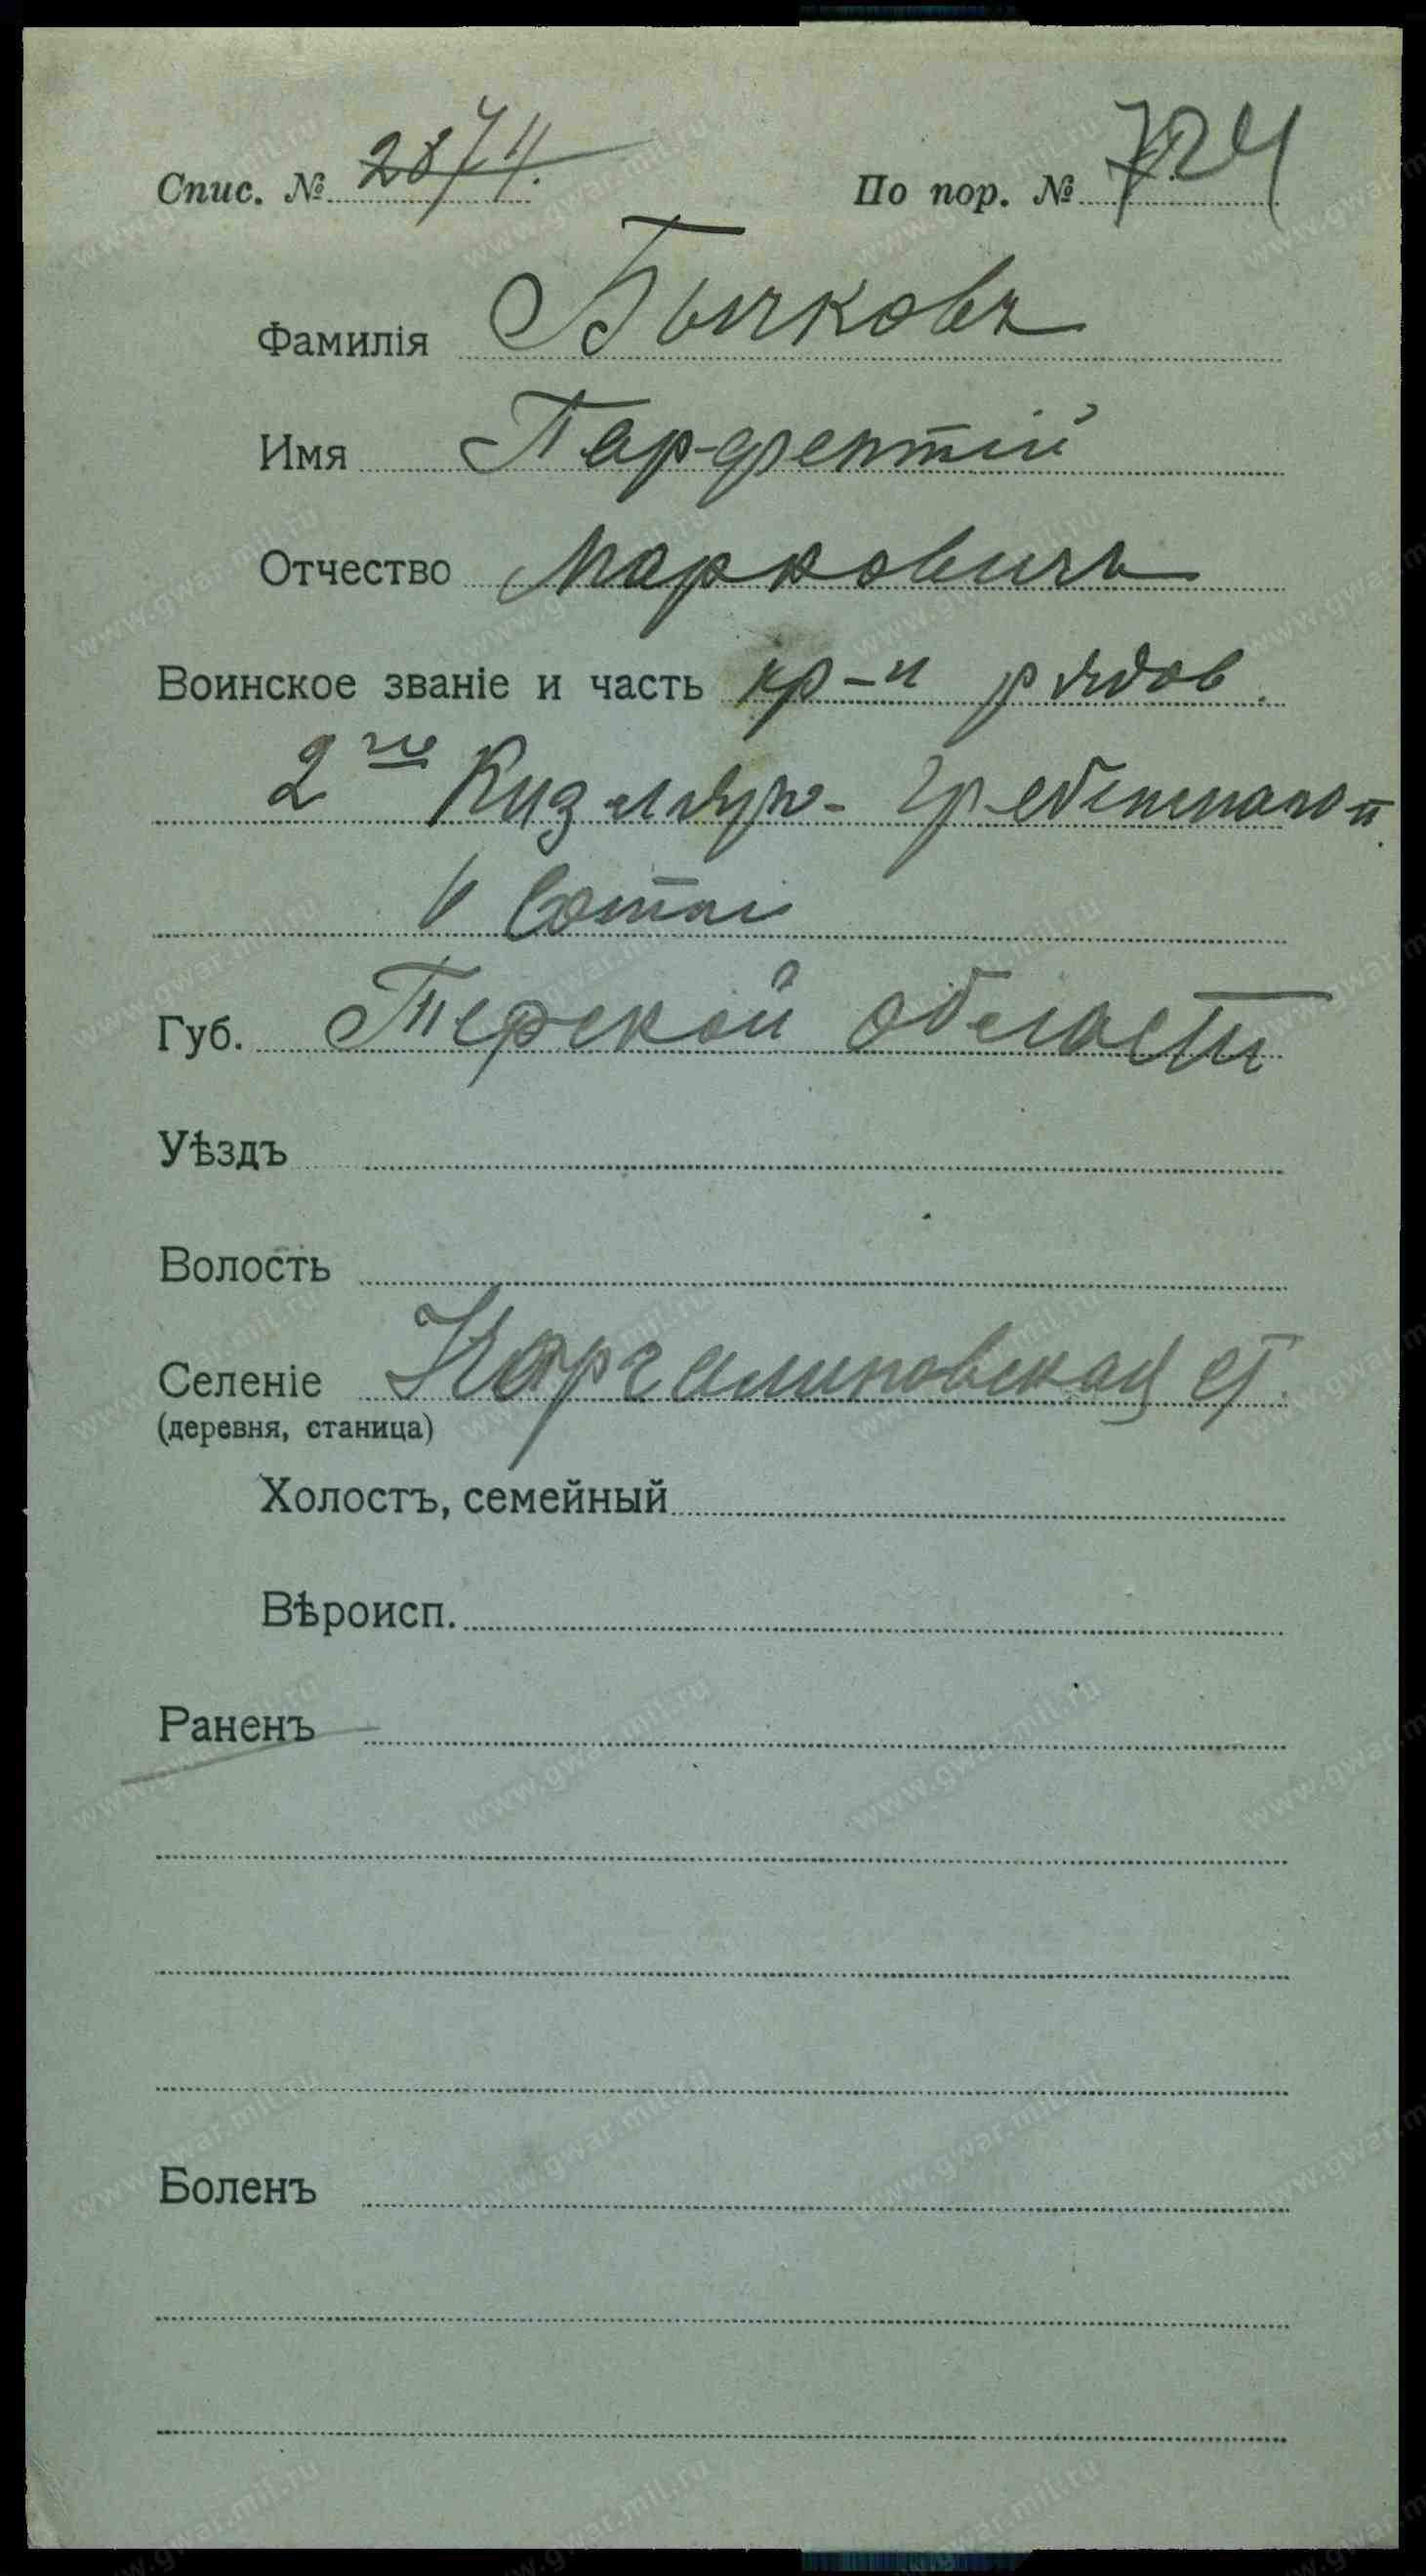 Спис. № 2874. По пор. № 724
Фамилія Бычковъ
Имя Парфентій
Отчество Марковичъ
Воинское званіе и часть кр-н рядов.
2го Кизляро-Гребенского п.
6 Сотни
Губ. Терской области
Уѣздъ
Волость
Селеніе Каргалиновская ст.
(деревня, станица)
Холостъ, семейный
Вѣроисп.
Раненъ
Боленъ